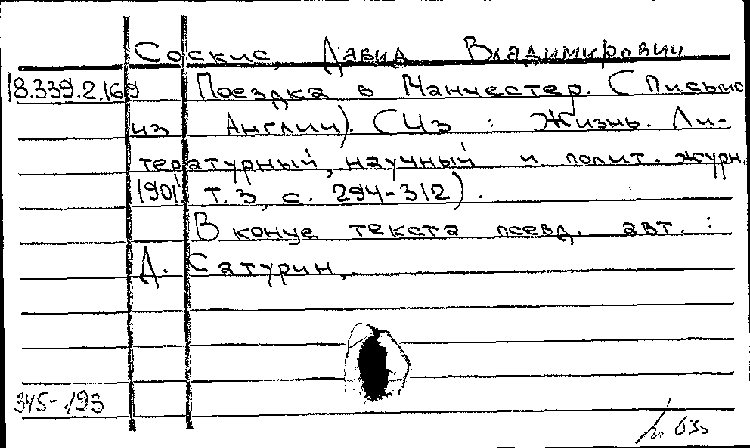 Соскис, Давид Владимирович
18.339.2.169 Поездка в Манчестер. (Письмо
из Англии). (Из : Жизнь. Ли-
тературный, научный и полит. журн.
1901 т. 3, с. 294-312).
В конце текста псевд. авт. :
Д. Сатурин.
345-193